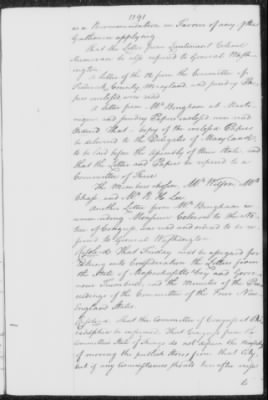 1191
as a Recommendation in Favour of any of the
Gentlemen applying
That the Letter from Lieutenant Colonel
be also refered to General Wash-
ington.
A Letter of the 18 from the Committee of
Frederick County Maryland and sundry Pa-
pers enclosed were read
A Letter from Mr Bingham at Marti-
nique and sundry Papers enclosed were read
Ordered That a Copy of the enclosed Papers
be delivered to the Delegates of Maryland
to be laid before the Assembly of their State, and
that the Letter and Papers be refered to a
Committee of Three
The Members chosen, Mr Wilson Mr
Chase and Mr R H Lee
Another Letter from Mr Bingham re-
commending Monsieur to the No-
tice of Congress was read and ordered to be re-
fered to General Washington
Resolved That Tuesday next be assigned for
taking into Consideration the Letters from
the State of Massachusetts Bay and Gover-
nour Trumbull, and the Minutes of the Pro-
ceedings of the Committee of the Four New
England States.
Resolved, That the Committee of Congress at Phi-
ladelphia be informed, That Congress from the
Committee State of Things do not deem the Necessity
of moving the publick Stores from that City,
but if any Circumstances should turn after
to